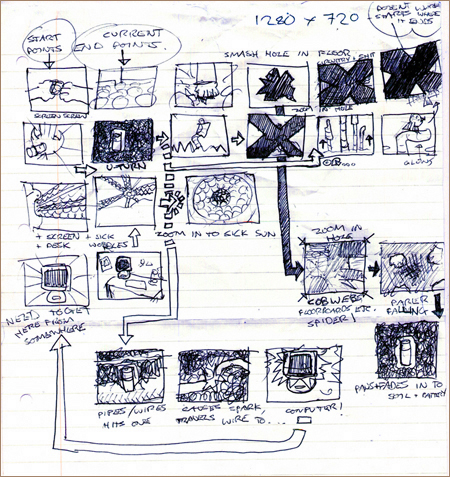 1280 x 720
START
POINTS
CURRENT
END POINTS.
SMASH HOLE IN FLOOR
STARTS WHILE
IT
SCREEN SCREEN
U-TURN
ZOOM IN HOLE
GLOWS
+ SCREEN + SICK
+ DESK WOBBLES
ZOOM IN TO SICK SUN
ZOOM IN
HOLE
COBWEBS
FLOORBOARDS ETC.
SPIDER!
PAPER
FALLING
NEED TO GET
HERE FROM
SOMEWHERE
PIPES/WIRES
HITS ONE
CAUSES SPARK,
TRAVELS WIRE TO...
COMPUTER!
PANS/FADES IN TO
SOIL + BATTERY